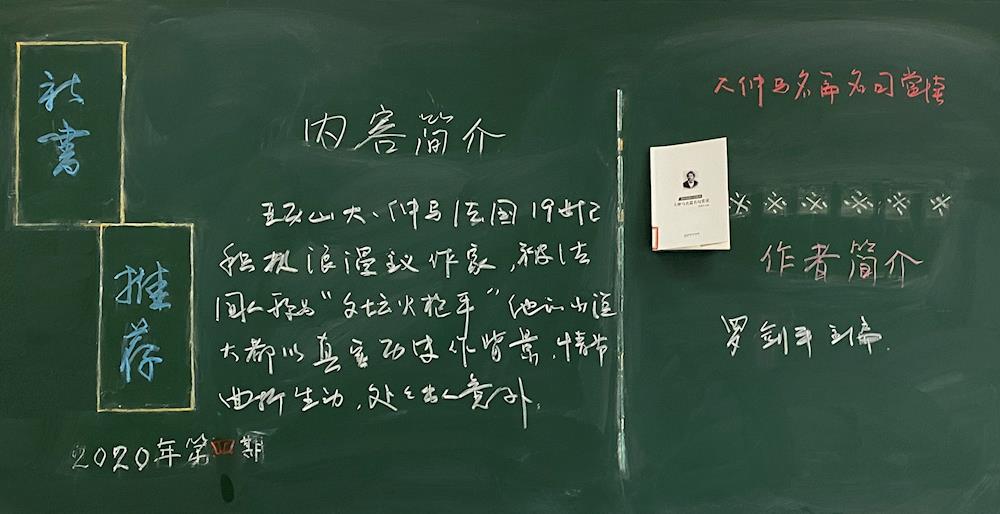 新书
推荐
2020年第四期
内容简介
亚历山大、仲马法国19世纪
积极浪漫义作家,被法
国人称为"文坛火枪手"他的小说
大都以真实历史作背景,情节
曲折生动,处处出人意外。
大仲马名篇名句赏读
※※※※※※
作者简介
罗剑平主编.